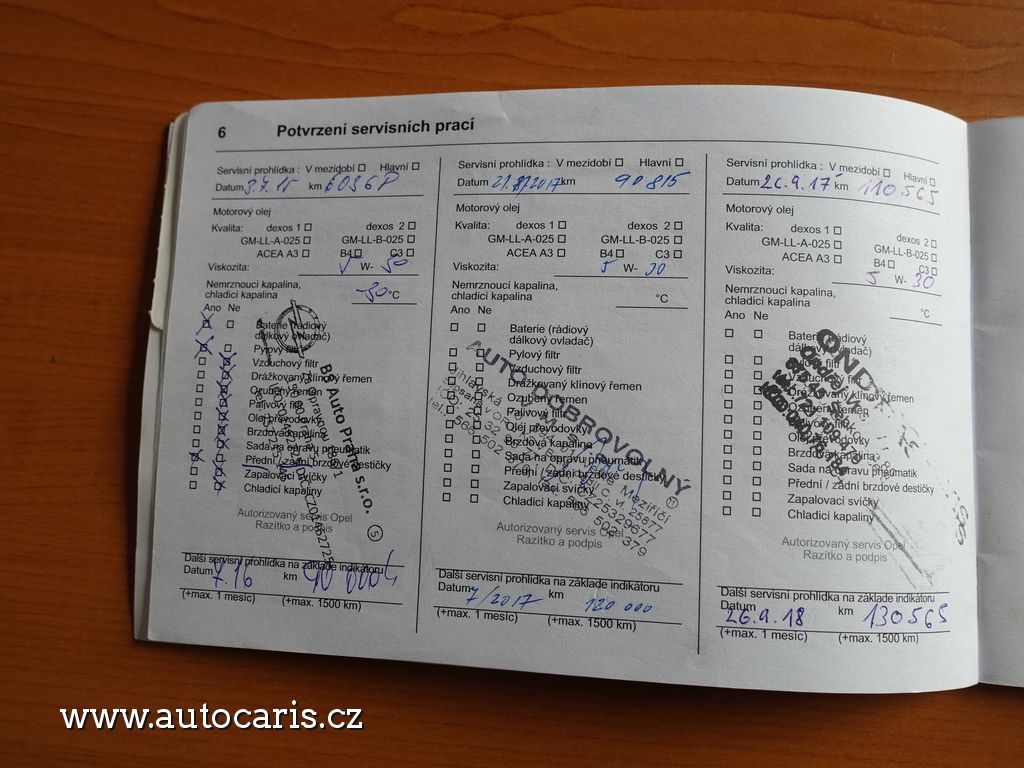 6 Potvrzení servisních prací
Servisní prohlídka : V mezidobí Hlavní
Datum km
Motorový olej
Kvalita: dexos 1 dexos 2
GM-LL-A-025 GM-LL-B-025
ACEA A3 B4 C3
Viskozita: 5 W- 30
Nemrznoucí kapalina,
chladicí kapalina -30 °C
Ano Ne
Baterie (rádiový
dálkový ovladač)
Pylový filtr
Vzduchový filtr
Drážkovaný klínový řemen
Ozubený řemen
Palivový filtr
Olej převodovky
Brzdová kapalina
Sada na opravu pneumatik
Přední / zadní brzdové destičky
Zapalovací svíčky
Chladicí kapaliny
B5 Auto Praha s.r.o.
5
Autorizovaný servis Opel
Razítko a podpis
Další servisní prohlídka na základe indikátoru
Datum 7.16 km
(+max. 1 mesíc) (+max. 1500 km)
Servisní prohlídka : V mezidobí Hlavní
Datum km 90 815
Motorový olej
Kvalita: dexos 1 dexos 2
GM-LL-A-025 GM-LL-B-025
ACEA A3 B4 C3
Viskozita: 5 W- 30
Nemrznoucí kapalina,
chladicí kapalina °C
Ano Ne
Baterie (rádiový
dálkový ovladač)
Pylový filtr
Vzduchový filtr
Drážkovaný klínový řemen
Ozubený řemen
Palivový filtr
Olej převodovky
Brzdová kapalina
Sada na opravu pneumatik
Přední / zadní brzdové destičky
Zapalovací svíčky
Chladicí kapaliny
AUTO DOBROVOLNÝ
Autorizovaný servis Opel
Razítko a podpis
Další servisní prohlídka na základe indikátoru
Datum 7/2017 km 120 000
(+max. 1 mesíc) (+max. 1500 km)
Servisní prohlídka : V mezidobí Hlavní
Datum 26.9.17 km 110 565
Motorový olej
Kvalita: dexos 1 dexos 2
GM-LL-A-025 GM-LL-B-025
ACEA A3 B4 C3
Viskozita: 5 W- 30
Nemrznoucí kapalina,
chladicí kapalina °C
Ano Ne
Baterie (rádiový
dálkový ovladač)
Pylový filtr
Vzduchový filtr
Drážkovaný klínový řemen
Ozubený řemen
Palivový filtr
Olej převodovky
Brzdová kapalina
Sada na opravu pneumatik
Přední / zadní brzdové destičky
Zapalovací svíčky
Chladicí kapaliny
Autorizovaný servis Opel
Razítko a podpis
Další servisní prohlídka na základe indikátoru
Datum 26.9.18 km 130565
(+max. 1 mesíc) (+max. 1500 km)
www.autocaris.cz